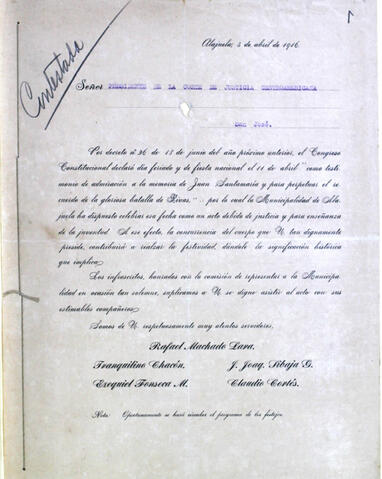 Contestada
1
Alajuela, 5 de abril de 1916.
Señor PRESIDENTE DE LA CORTE DE JUSTICIA CENTROAMERICANA
San José.
Por decreto nº 36 de 18 de junio del año próximo anterior, el Congreso
Constitucional declaró día feriado y de fiesta nacional el 11 de abril "como testi
monio de admiración a la memoria de Juan Santamaría y para perpetuar el re
cuerdo de la gloriosa batalla de Rivas," por lo cual la Municipalidad de Ala
juela ha dispuesto celebrar esa fecha como un acto debido de justicia y para enseñanza
de la juventud. A ese efecto, la concurrencia del cuerpo que U. tan dignamente
preside, contribuirá a realzar la festividad, dándole la significación histórica
que implica.
Los infrascritos, honrados con la comisión de representar a la Municipa
lidad en ocasión tan solemne, suplicamos a U. se digne asistir al acto con sus
estimables compañeros.
Somos de U. respetuosamente muy atentos servidores,
Rafael Machado Lara.
Tranquilino Chacón. J. Joaq. Sibaja G.
Ezequiel Fonseca M. Claudio Cortés.
Nota: Oportunamente se hará circular el programa de los festejos.